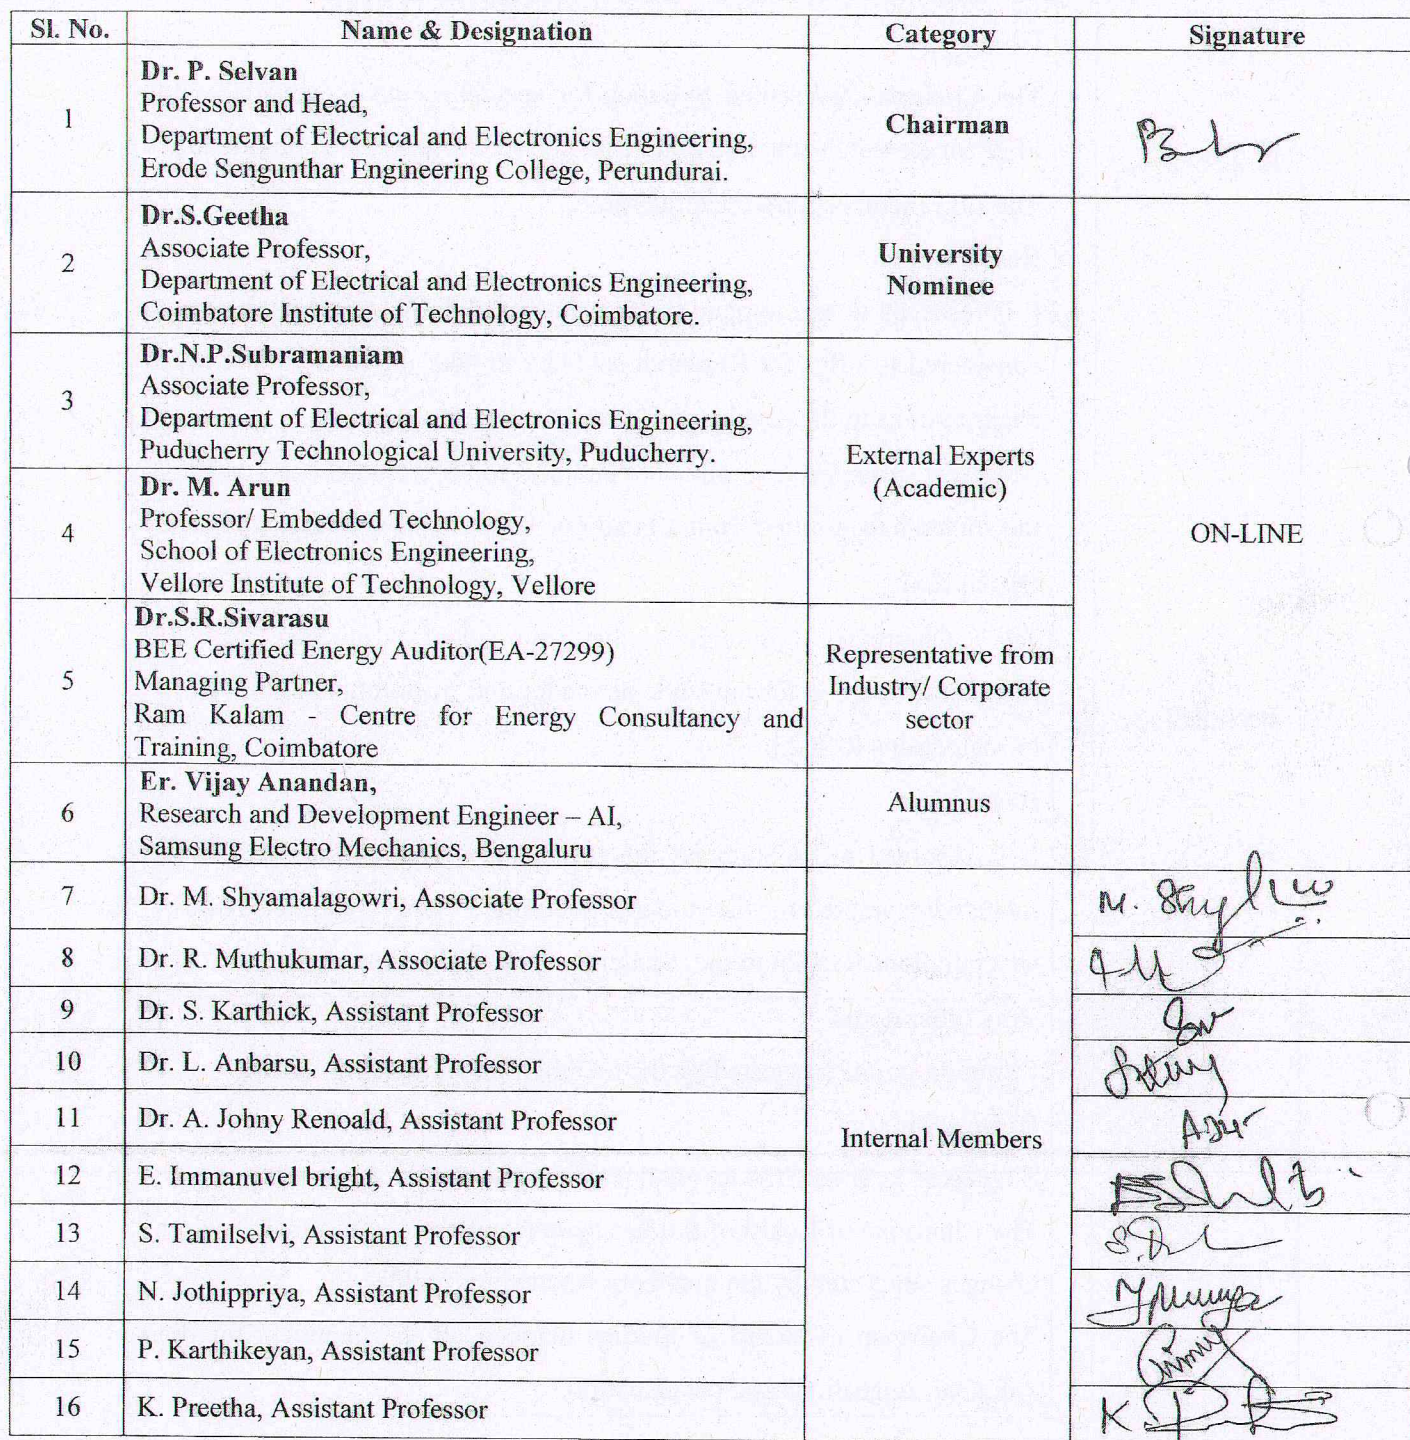 Sl. No. Name & Designation Category Signature
1
Dr. P. Selvan
Professor and Head,
Department of Electrical and Electronics Engineering,
Erode Sengunthar Engineering College, Perundurai.
Chairman
2
Dr.S.Geetha
Associate Professor,
Department of Electrical and Electronics Engineering,
Coimbatore Institute of Technology, Coimbatore.
University
Nominee
3
Dr.N.P.Subramaniam
Associate Professor,
Department of Electrical and Electronics Engineering,
Puducherry Technological University, Puducherry.
External Experts
(Academic)
4
Dr. M. Arun
Professor/ Embedded Technology,
School of Electronics Engineering,
Vellore Institute of Technology, Vellore
ON-LINE
5
Dr.S.R.Sivarasu
BEE Certified Energy Auditor(EA-27299)
Managing Partner,
Ram Kalam - Centre for Energy Consultancy and
Training, Coimbatore
Representative from
Industry/ Corporate
sector
6
Er. Vijay Anandan,
Research and Development Engineer – AI,
Samsung Electro Mechanics, Bengaluru
Alumnus
7 Dr. M. Shyamalagowri, Associate Professor
8 Dr. R. Muthukumar, Associate Professor
9 Dr. S. Karthick, Assistant Professor
10 Dr. L. Anbarsu, Assistant Professor
11 Dr. A. Johny Renoald, Assistant Professor
Internal Members
12 E. Immanuvel bright, Assistant Professor
13 S. Tamilselvi, Assistant Professor
14 N. Jothippriya, Assistant Professor
15 P. Karthikeyan, Assistant Professor
16 K. Preetha, Assistant Professor